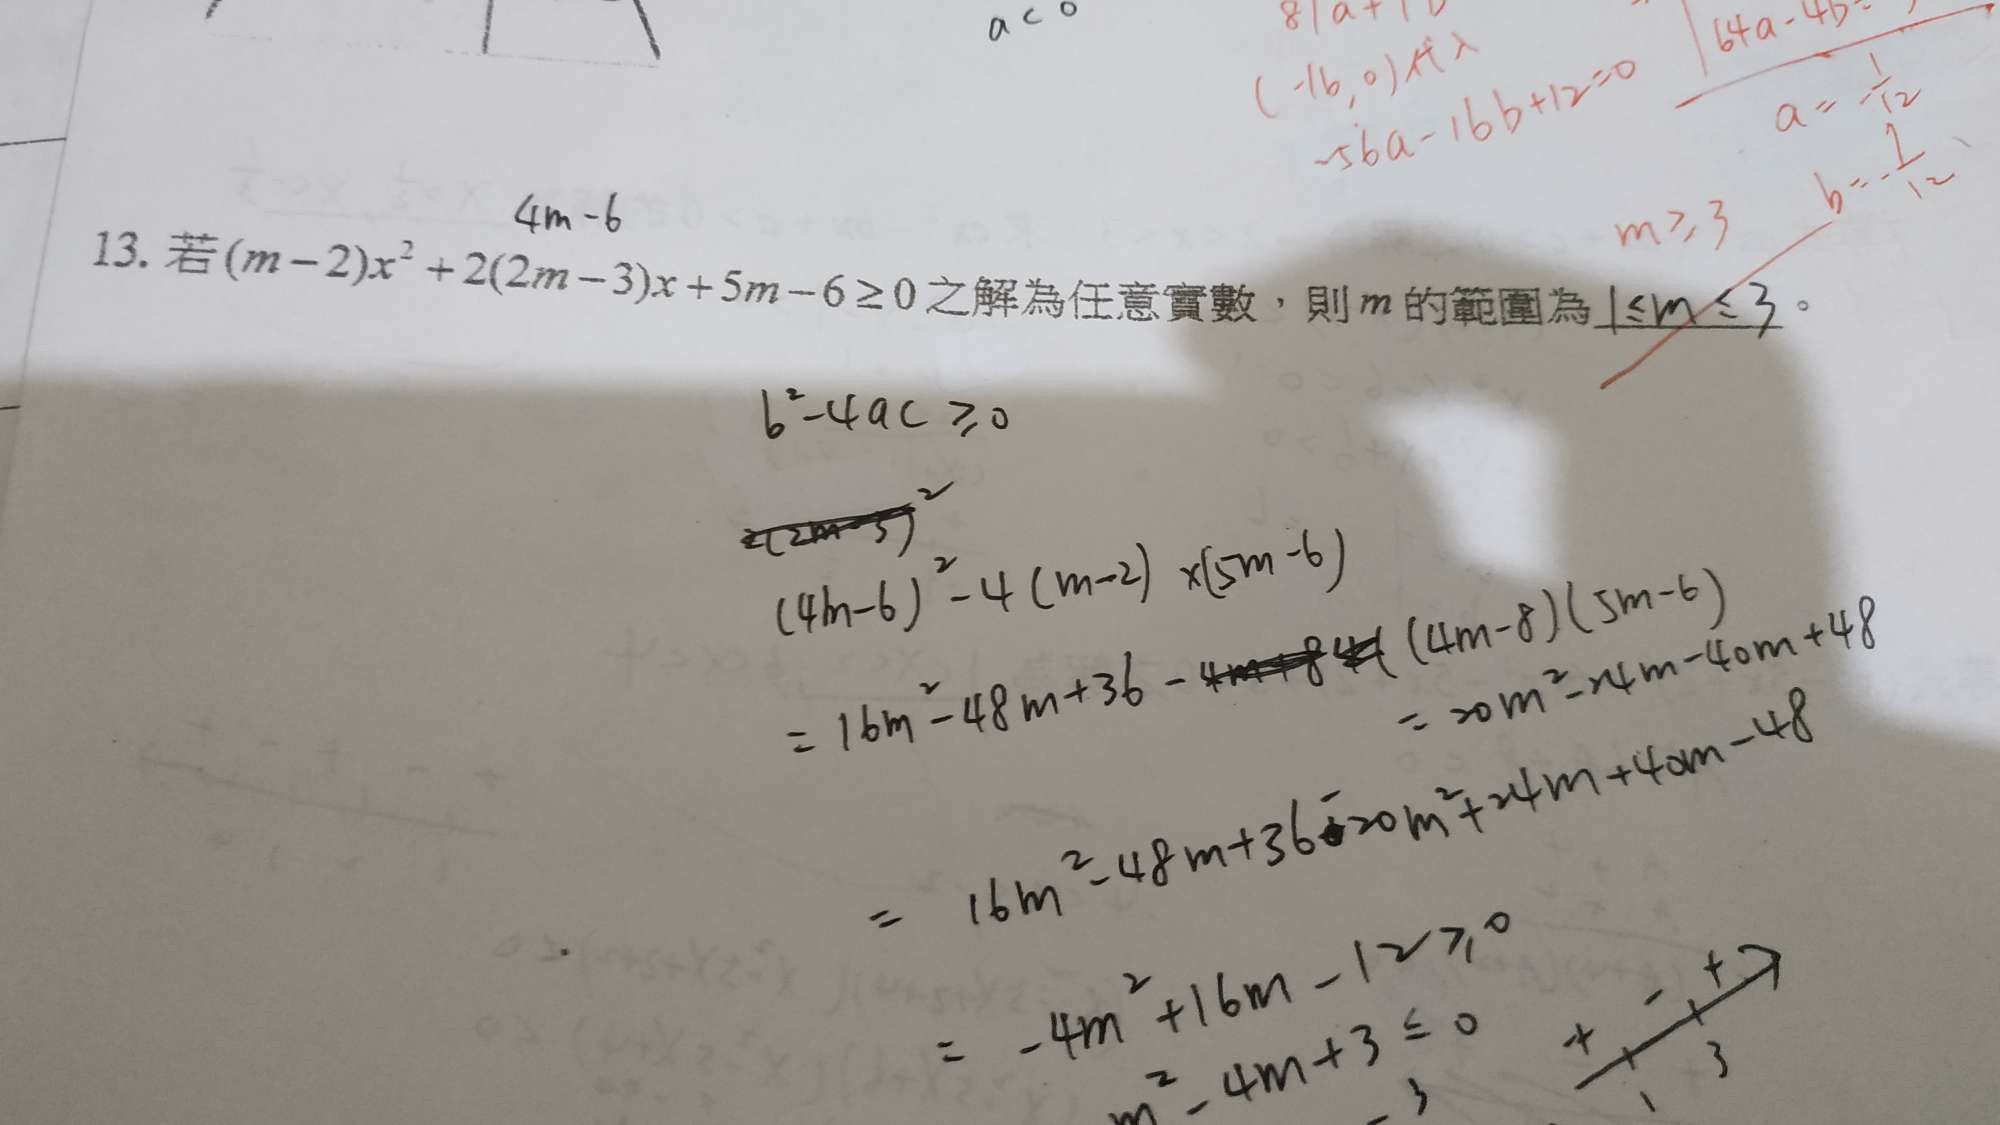 a < 0
81a+1b
(-16,0)代入
-56a-16b+12=0
64a-4b=
a=-1/12
b=-1/12
m≥3
4m-6
13. 若(m-2)x²+2(2m-3)x+5m-6≥0之解為任意實數,則m的範圍為 1≤m≤3 。
b²-4ac≥0
(4m-6)²-4(m-2)×(5m-6)
=16m²-48m+36-(4m-8)(5m-6)
=20m²-24m-40m+48
= 16m²-48m+36-20m²+24m+40m-48
= -4m²+16m-12≥0
m²-4m+3≤0
+ - +
1 3
-3